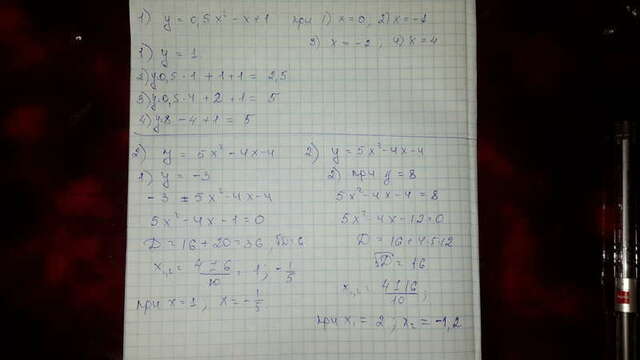 1) y = 0,5x² - x + 1 при 1) x = 0, 2) x = -1
3) x = -2, 4) x = 4
1) y = 1
2) y 0,5 · 1 + 1 + 1 = 2,5
3) y 0,5 · 4 + 2 + 1 = 5
4) y 8 - 4 + 1 = 5
2) y = 5x² - 4x - 4
1) y = -3
-3 = 5x² - 4x - 4
5x² - 4x - 1 = 0
D = 16 + 20 = 36, √D = 6
x₁,₂ = (4 ± 6)/10 = 1; -1/5
при x = 1, x = -1/5
2) y = 5x² - 4x - 4
2) при y = 8
5x² - 4x - 4 = 8
5x² - 4x - 12 = 0
D = 16 + 4·5·12
√D = 16
x₁,₂ = (4 ± 16)/10;
при x₁ = 2; x₂ = -1,2